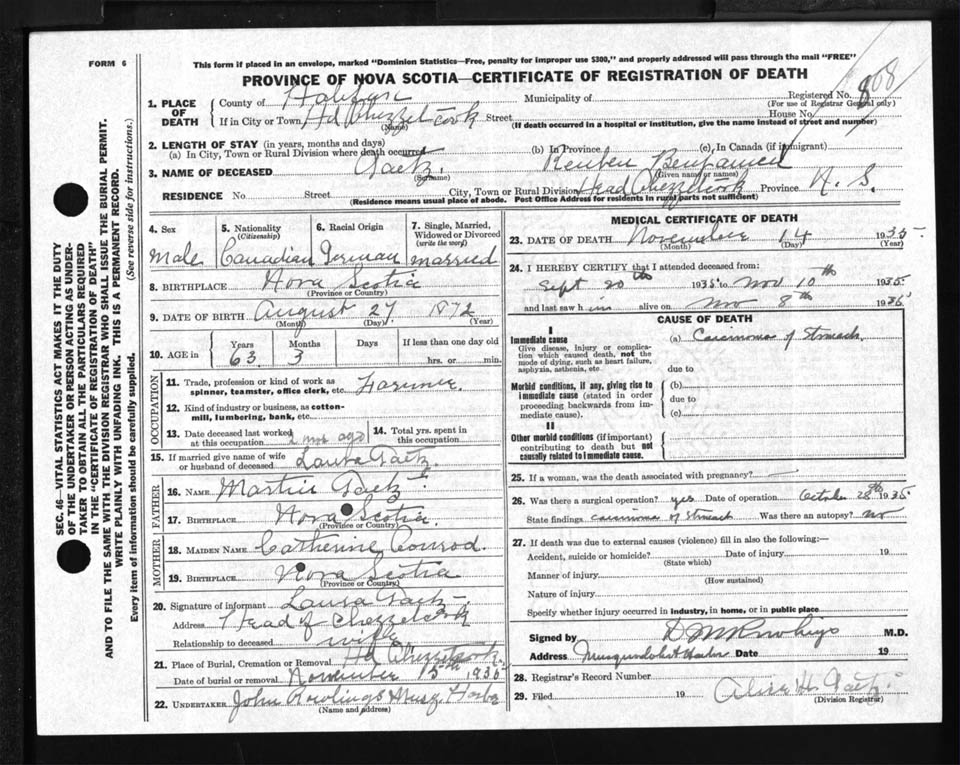 This form if placed in an envelope, marked "Dominion Statistics—Free, penalty for improper use $300," and properly addressed will pass through the mail "FREE"
FORM 6
PROVINCE OF NOVA SCOTIA—CERTIFICATE OF REGISTRATION OF DEATH
808
1. PLACE OF DEATH
County of Halifax Municipality of Registered No. 8
(For use of Registrar General only)
If in City or Town Hd Chezzetcook Street House No.
(Name) (If death occurred in a hospital or institution, give the name instead of street and number)
2. LENGTH OF STAY (in years, months and days)
(a) In City, Town or Rural Division where death occurred (b) In Province (c) In Canada (if immigrant)
3. NAME OF DECEASED Gaetz. Reuben Benjamin
(Surname) (Given name or names)
RESIDENCE No. Street City, Town or Rural Division Head Chezzetcook Province N. S.
(Residence means usual place of abode. Post Office Address for residents in rural parts not sufficient)
4. Sex
Male
5. Nationality
(Citizenship)
Canadian
6. Racial Origin
German
7. Single, Married, Widowed or Divorced
(write the word)
married
8. BIRTHPLACE Nova Scotia
(Province or Country)
9. DATE OF BIRTH August 27 1872
(Month) (Day) (Year)
10. AGE in Years Months Days If less than one day old
63 3 hrs. or min.
OCCUPATION
11. Trade, profession or kind of work as spinner, teamster, office clerk, etc. Farmer
12. Kind of industry or business, as cotton-mill, lumbering, bank, etc.
13. Date deceased last worked at this occupation 2 mos ago
14. Total yrs. spent in this occupation
15. If married give name of wife or husband of deceased Laura Gaetz
FATHER
16. NAME Martin Gaetz
17. BIRTHPLACE Nova Scotia
(Province or Country)
MOTHER
18. MAIDEN NAME Catherine Conrod.
19. BIRTHPLACE Nova Scotia
(Province or Country)
20. Signature of informant Laura Gaetz
Address Head of Chezzetcook
Relationship to deceased wife
21. Place of Burial, Cremation or Removal Hd Chezzetcook
Date of burial or removal November 15th 1935
22. UNDERTAKER John Rowlings Musq. Harbor
(Name and address)
MEDICAL CERTIFICATE OF DEATH
23. DATE OF DEATH November 14 1935
(Month) (Day) (Year)
24. I HEREBY CERTIFY that I attended deceased from:
Sept 20th 1935 to Nov 10th 1935
and last saw him alive on Nov 8th 1935
CAUSE OF DEATH
I
Immediate cause
Give disease, injury or complication which caused death, not the mode of dying, such as heart failure, asphyxia, asthenia, etc.
(a) Carcinoma of Stomach
due to
Morbid conditions, if any, giving rise to immediate cause (stated in order proceeding backwards from immediate cause).
(b)
due to
(c)
II
Other morbid conditions (if important) contributing to death but not causally related to immediate cause.
25. If a woman, was the death associated with pregnancy?
26. Was there a surgical operation? yes Date of operation October 28th 1935
State findings carcinoma of stomach Was there an autopsy? no
27. If death was due to external causes (violence) fill in also the following:—
Accident, suicide or homicide? Date of injury 19
(State which)
Manner of injury
(How sustained)
Nature of injury
Specify whether injury occurred in industry, in home, or in public place
Signed by M.D.
Address Musquodoboit Harbor Date 19
28. Registrar's Record Number
29. Filed 19 Alice H. Gaetz
(Division Registrar)
SEC. 46—VITAL STATISTICS ACT MAKES IT THE DUTY
OF THE UNDERTAKER OR PERSON ACTING AS UNDER-
TAKER TO OBTAIN ALL THE PARTICULARS REQUIRED
IN THE "CERTIFICATE OF REGISTRATION OF DEATH"
AND TO FILE THE SAME WITH THE DIVISION REGISTRAR WHO SHALL ISSUE THE BURIAL PERMIT.
WRITE PLAINLY WITH UNFADING INK. THIS IS A PERMANENT RECORD.
Every item of information should be carefully supplied. (See reverse side for instructions.)